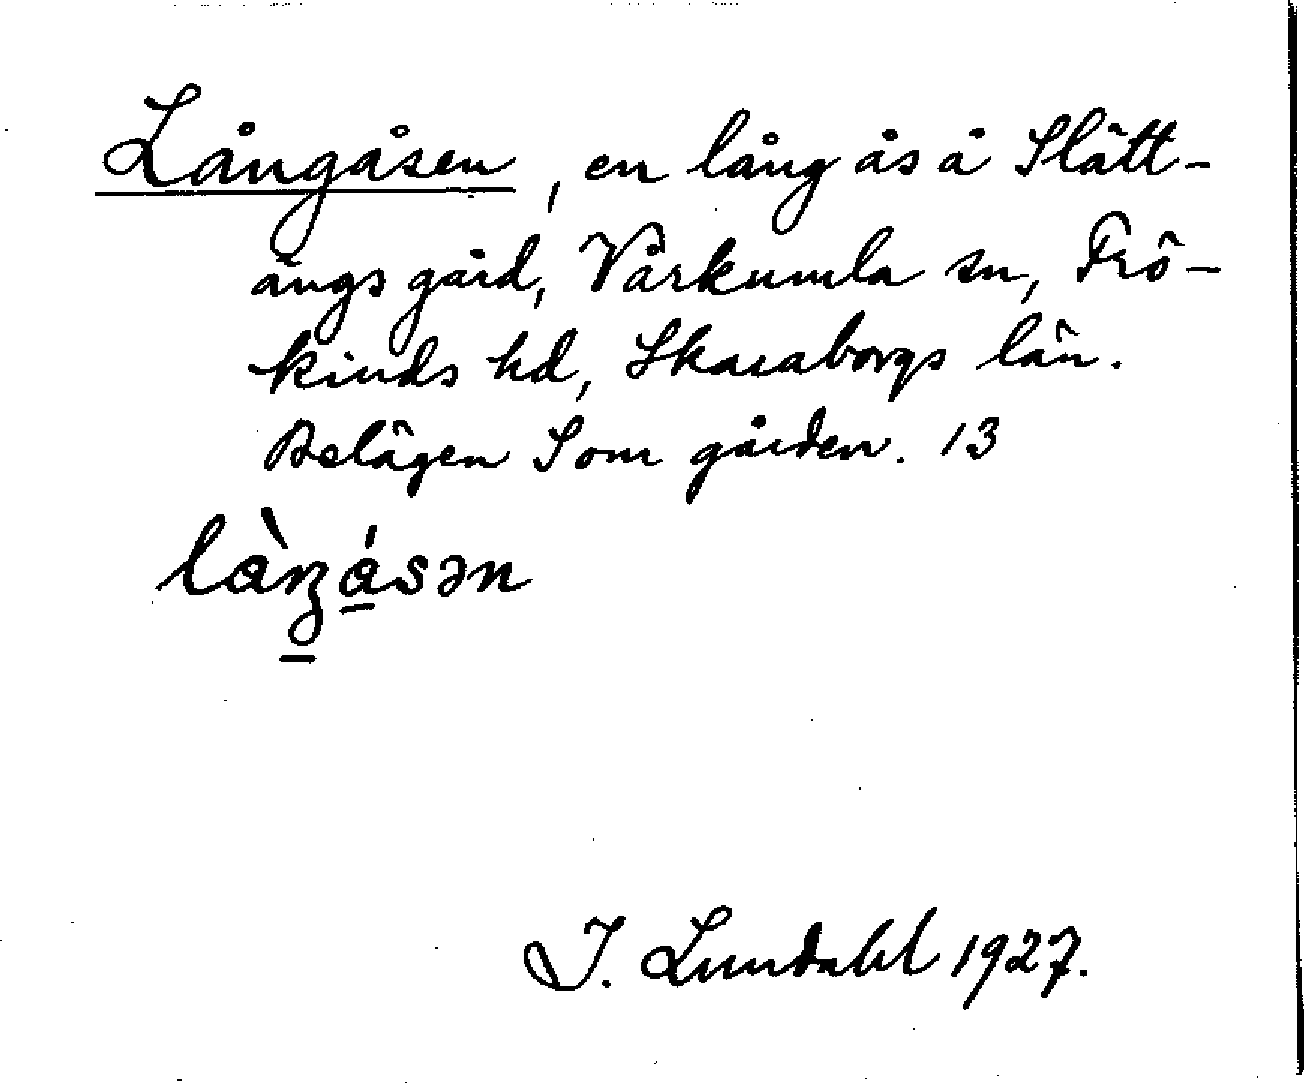 Långåsen, en lång ås å Slätt-
ängs gård, Vårkumla sn, Frö-
kinds hd, Skaraborgs län.
Belägen Som gården. 13
là̀ŋásən
I. Lundahl 1927.